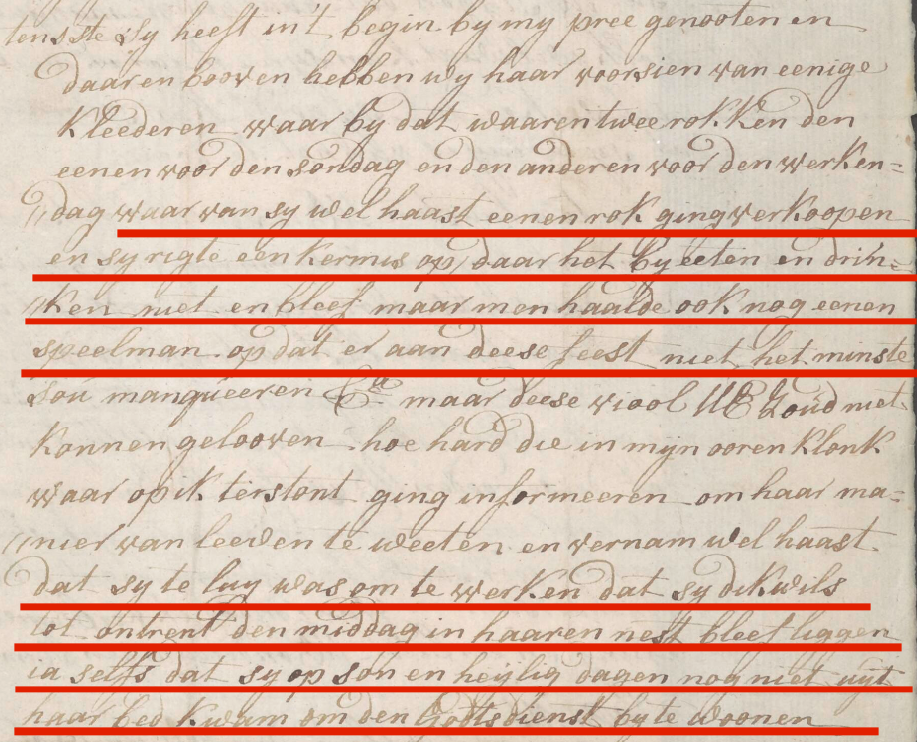 tenstte sy heeft in't begin by my pree genooten en
daarenbooven hebben wy haar voorsien van eenige
Kleederen waar by dat waaren twee rokken den
eenen voor den sondag en den anderen voor den werken=
"dag waar van sy wel haast eenen rok ging verkoopen
en sy rigte een kermis op, daar het by eeten en drin=
"ken niet en bleef maar men haalde ook nog eenen
speelman op dat er aan deese feest niet het minste
sou manqueeren &a maar deese viool UE Zoud niet
konnen gelooven hoe hard die in mijn ooren klonk
waar op ik terstont ging informeeren om haar ma=
"nier van leeven te weeten en vernam wel haast
dat sy te luy was om te werken dat sy dikwils
tot ontrent den middag in haaren nest bleef liggen
ia selfs dat sy op son en heylig dagen nog niet uyt
haar bed kwam om den Godtsdienst by te woonen